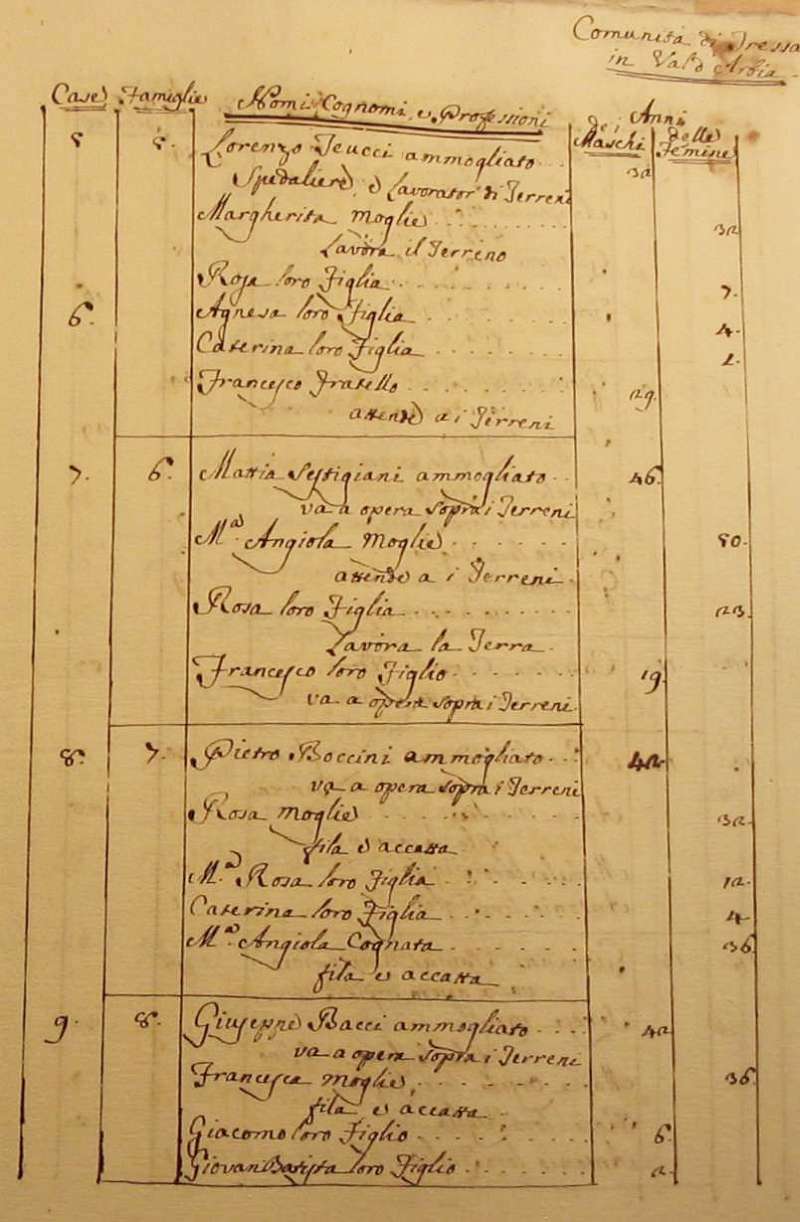 Comunità di Tressa
in Val d'Arbia
Case Famiglie Nomi, Cognomi, e Professioni Anni
de' Maschi delle Femine
5 5. Lorenzo Teucci ammogliato 32
Spedaliere, e lavorator di Terreni
Margherita Moglie 32
lavora il Terreno
Rosa loro Figlia 7.
6. Agnesa loro Figlia 4.
Caterina loro Figlia 2.
Francesco Fratello 29.
attende a i Terreni
7. 6. Mattia Sestigiani ammogliato 46.
va a opera sopra i Terreni
M.a Angiola Moglie 50.
attende a i Terreni
Rosa loro Figlia 23.
lavora la Terra
Francesco loro Figlio 19.
va a opera sopra i Terreni
8. 7. Pietro Boccini ammogliato 42
va a opera sopra i Terreni
Rosa Moglie 32.
fila e accatta
M.a Rosa loro Figlia 12.
Caterina loro Figlia 4.
M.a Angiola Cognata 36
fila e accatta
9. 8. Giuseppe Bacci ammogliato 42
va a opera sopra i Terreni
Francesca Moglie 36.
fila e accatta
Giacomo loro Figlio 6.
Giovan Batista loro Figlio 2.